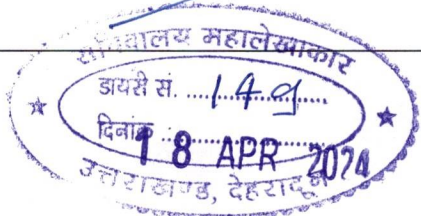 सचिवालय महालेखाकार
डायरी सं. ....149.......
दिनांक ..................
18 APR 2024
उत्तराखण्ड, देहरादून